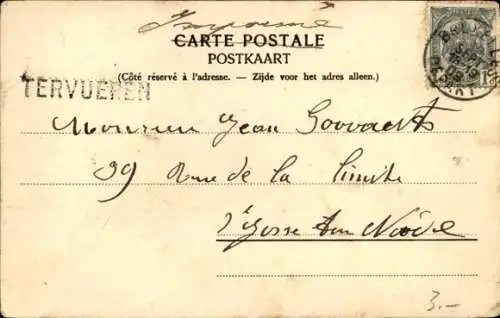 Imprimé
CARTE POSTALE
POSTKAART
(Côté réservé à l'adresse. — Zijde voor het adres alleen.)
TERVUEREN
Monsieur Jean Goovaerts
39 Rue de la limite
St Josse ten Noode
3.-